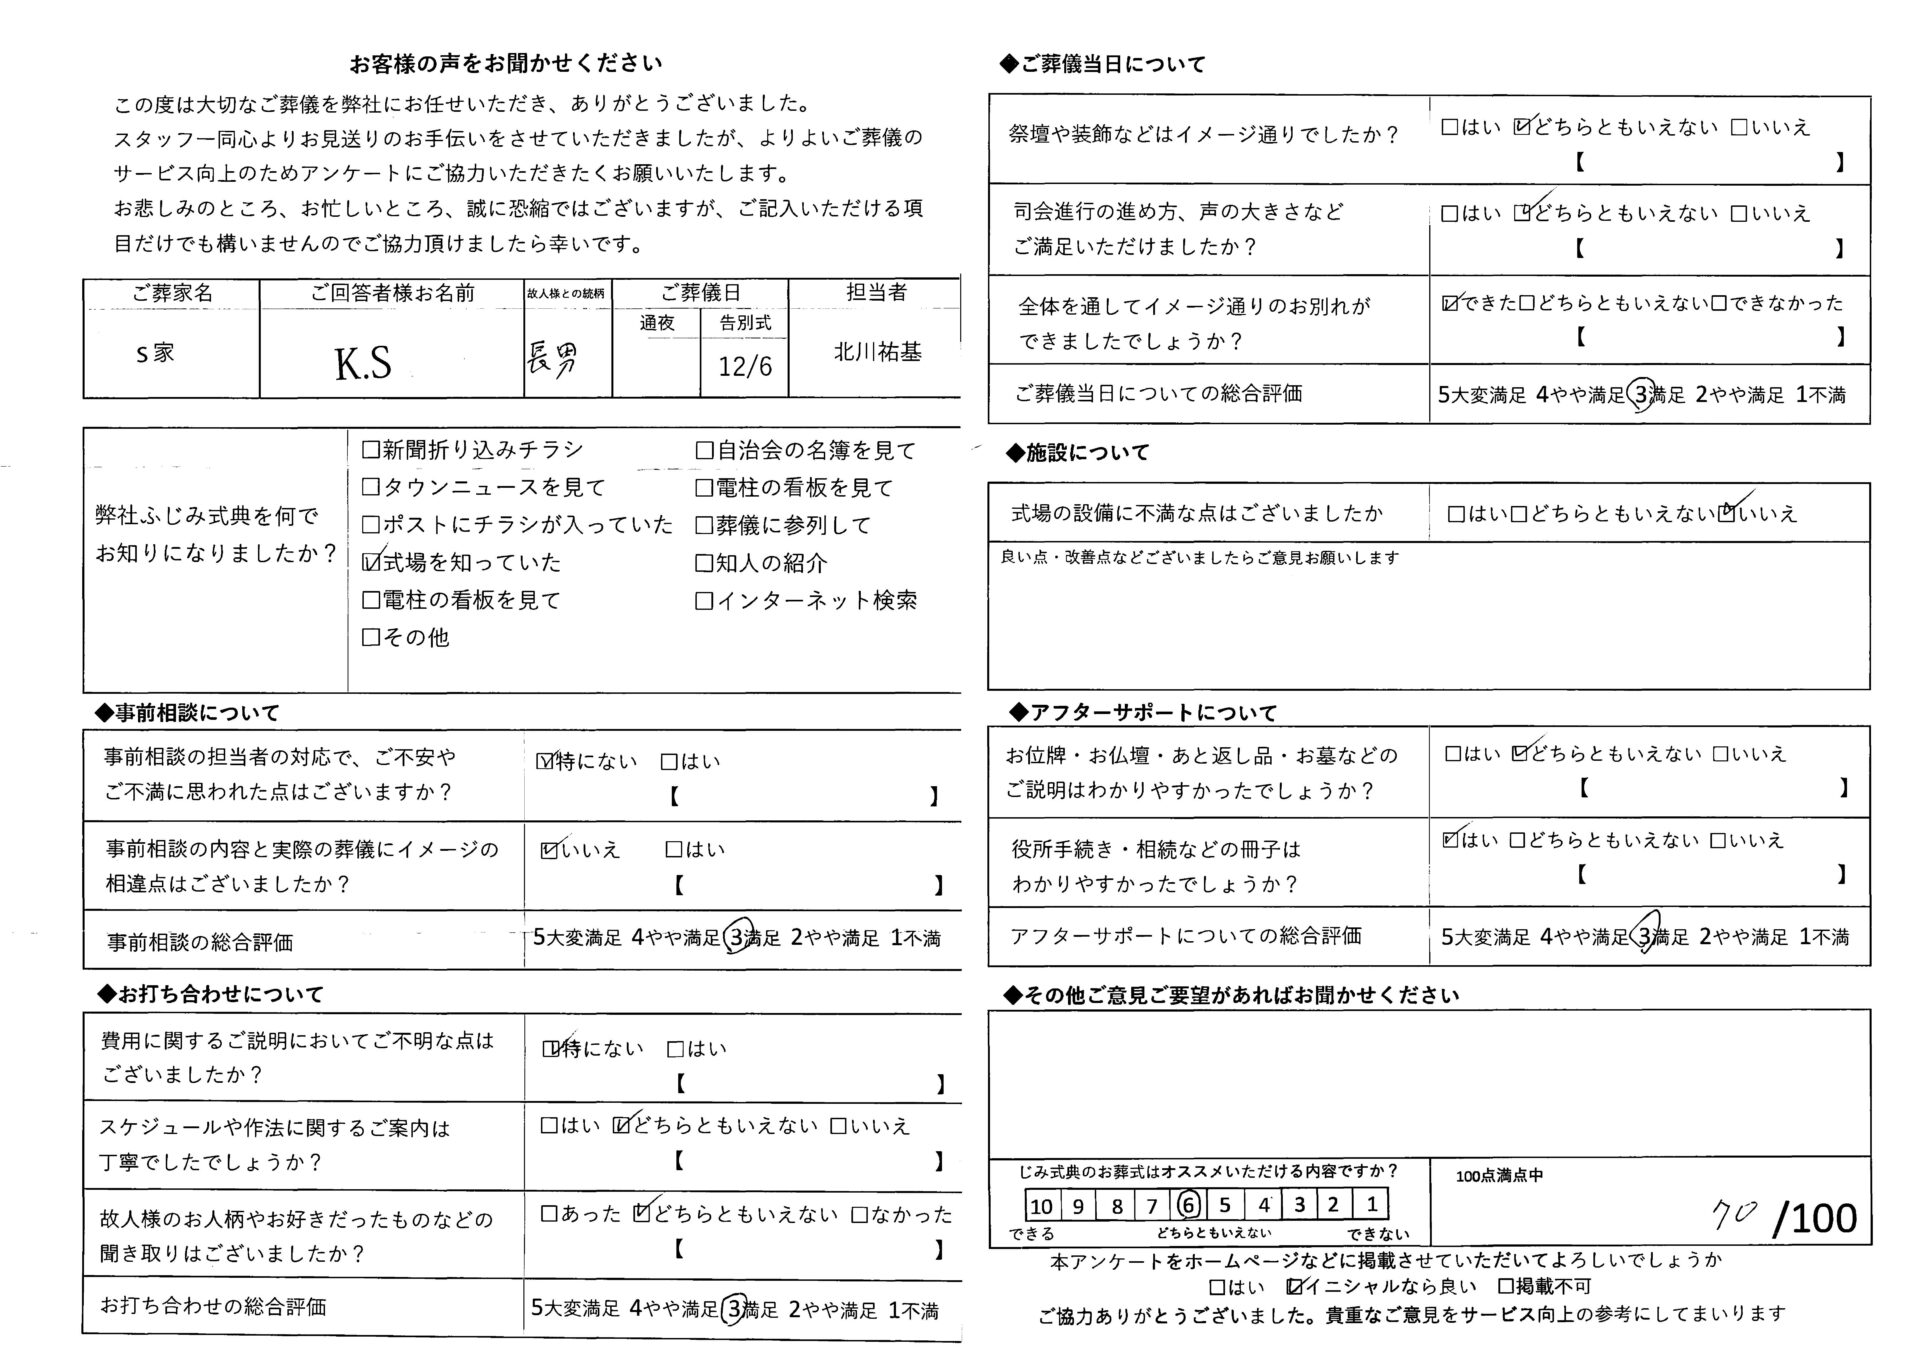 お客様の声をお聞かせください
この度は大切なご葬儀を弊社にお任せいただき、ありがとうございました。
スタッフ一同心よりお見送りのお手伝いをさせていただきましたが、よりよいご葬儀の
サービス向上のためアンケートにご協力いただきたくお願いいたします。
お悲しみのところ、お忙しいところ、誠に恐縮ではございますが、ご記入いただける項
目だけでも構いませんのでご協力頂けましたら幸いです。
ご葬家名 ご回答者様お名前 故人様との続柄 ご葬儀日 担当者
通夜 告別式
s家 K.S 長男 12/6 北川祐基
弊社ふじみ式典を何で
お知りになりましたか？
□新聞折り込みチラシ □自治会の名簿を見て
□タウンニュースを見て □電柱の看板を見て
□ポストにチラシが入っていた □葬儀に参列して
☑式場を知っていた □知人の紹介
□電柱の看板を見て □インターネット検索
□その他
◆事前相談について
事前相談の担当者の対応で、ご不安や
ご不満に思われた点はございますか？
☑特にない □はい
【 】
事前相談の内容と実際の葬儀にイメージの
相違点はございましたか？
☑いいえ □はい
【 】
事前相談の総合評価 5大変満足 4やや満足 3満足 2やや満足 1不満
◆お打ち合わせについて
費用に関するご説明においてご不明な点は
ございましたか？
☑特にない □はい
【 】
スケジュールや作法に関するご案内は
丁寧でしたでしょうか？
□はい ☑どちらともいえない □いいえ
【 】
故人様のお人柄やお好きだったものなどの
聞き取りはございましたか？
□あった ☑どちらともいえない □なかった
【 】
お打ち合わせの総合評価 5大変満足 4やや満足 3満足 2やや満足 1不満
◆ご葬儀当日について
祭壇や装飾などはイメージ通りでしたか？
□はい ☑どちらともいえない □いいえ
【 】
司会進行の進め方、声の大きさなど
ご満足いただけましたか？
□はい ☑どちらともいえない □いいえ
【 】
全体を通してイメージ通りのお別れが
できましたでしょうか？
☑できた□どちらともいえない□できなかった
【 】
ご葬儀当日についての総合評価 5大変満足 4やや満足 3満足 2やや満足 1不満
◆施設について
式場の設備に不満な点はございましたか □はい□どちらともいえない☑いいえ
良い点・改善点などございましたらご意見お願いします
◆アフターサポートについて
お位牌・お仏壇・あと返し品・お墓などの
ご説明はわかりやすかったでしょうか？
□はい ☑どちらともいえない □いいえ
【 】
役所手続き・相続などの冊子は
わかりやすかったでしょうか？
☑はい □どちらともいえない □いいえ
【 】
アフターサポートについての総合評価 5大変満足 4やや満足 3満足 2やや満足 1不満
◆その他ご意見ご要望があればお聞かせください
じみ式典のお葬式はオススメいただける内容ですか？
10 9 8 7 6 5 4 3 2 1
できる どちらともいえない できない
100点満点中
70 /100
本アンケートをホームページなどに掲載させていただいてよろしいでしょうか
□はい ☑イニシャルなら良い □掲載不可
ご協力ありがとうございました。貴重なご意見をサービス向上の参考にしてまいります